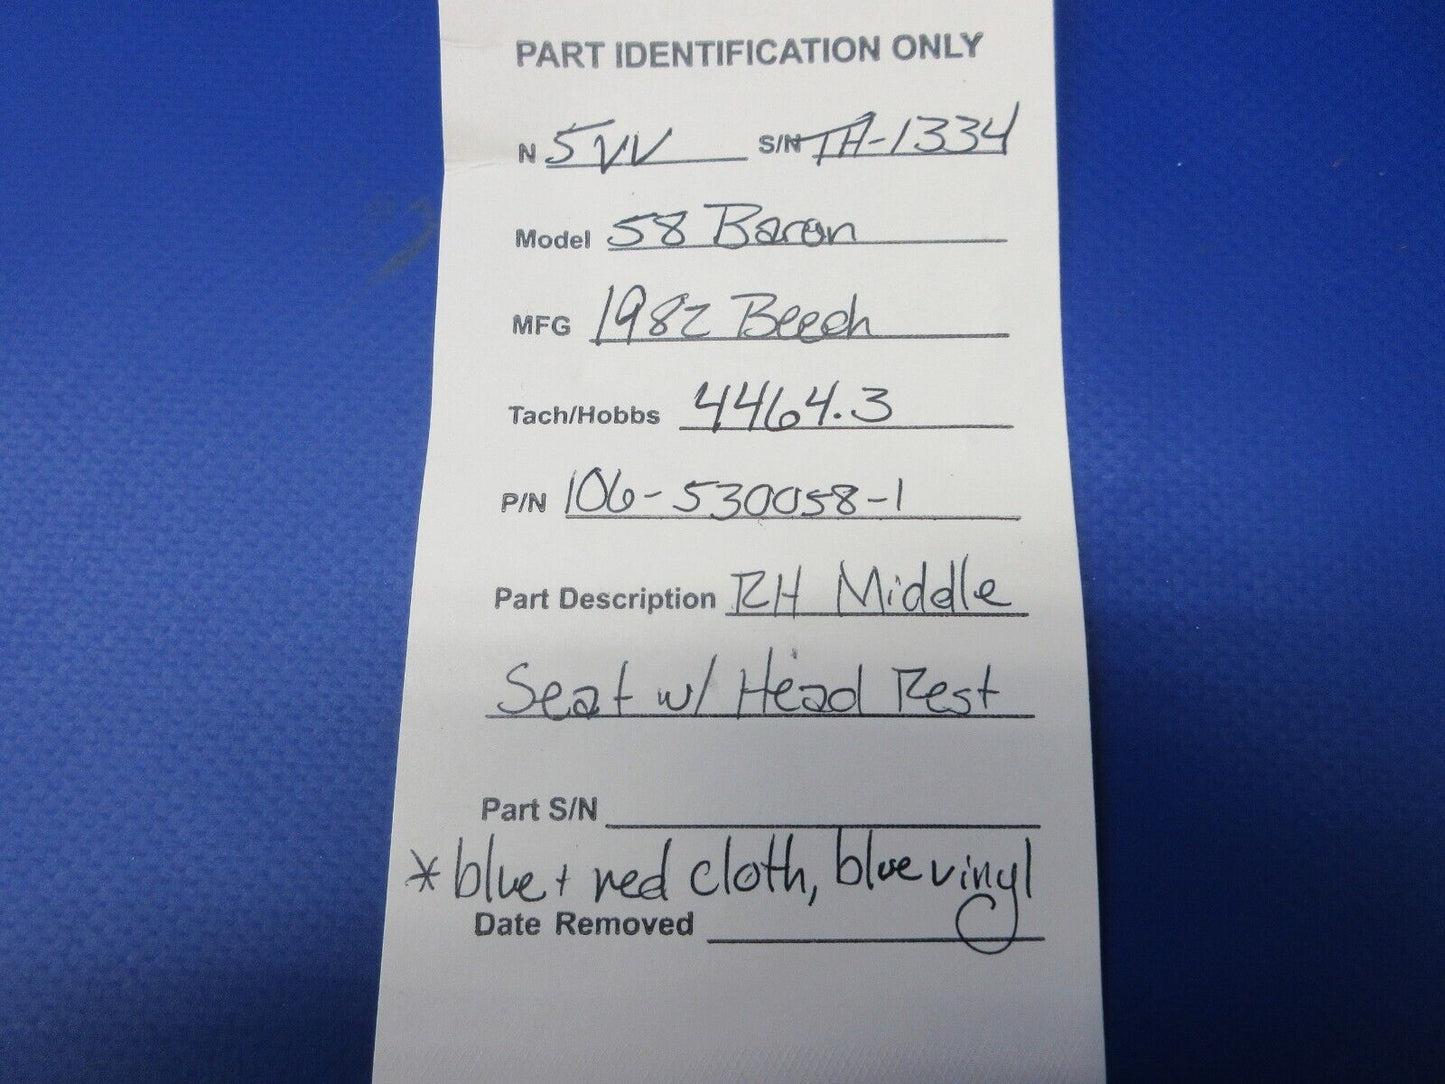 PART IDENTIFICATION ONLY
N 5VV S/N TH-1334
Model 58 Baron
MFG 1982 Beech
Tach/Hobbs 4464.3
P/N 106-530058-1
Part Description RH Middle
Seat w/ Head Rest
Part S/N
* blue + red cloth, blue vinyl
Date Removed